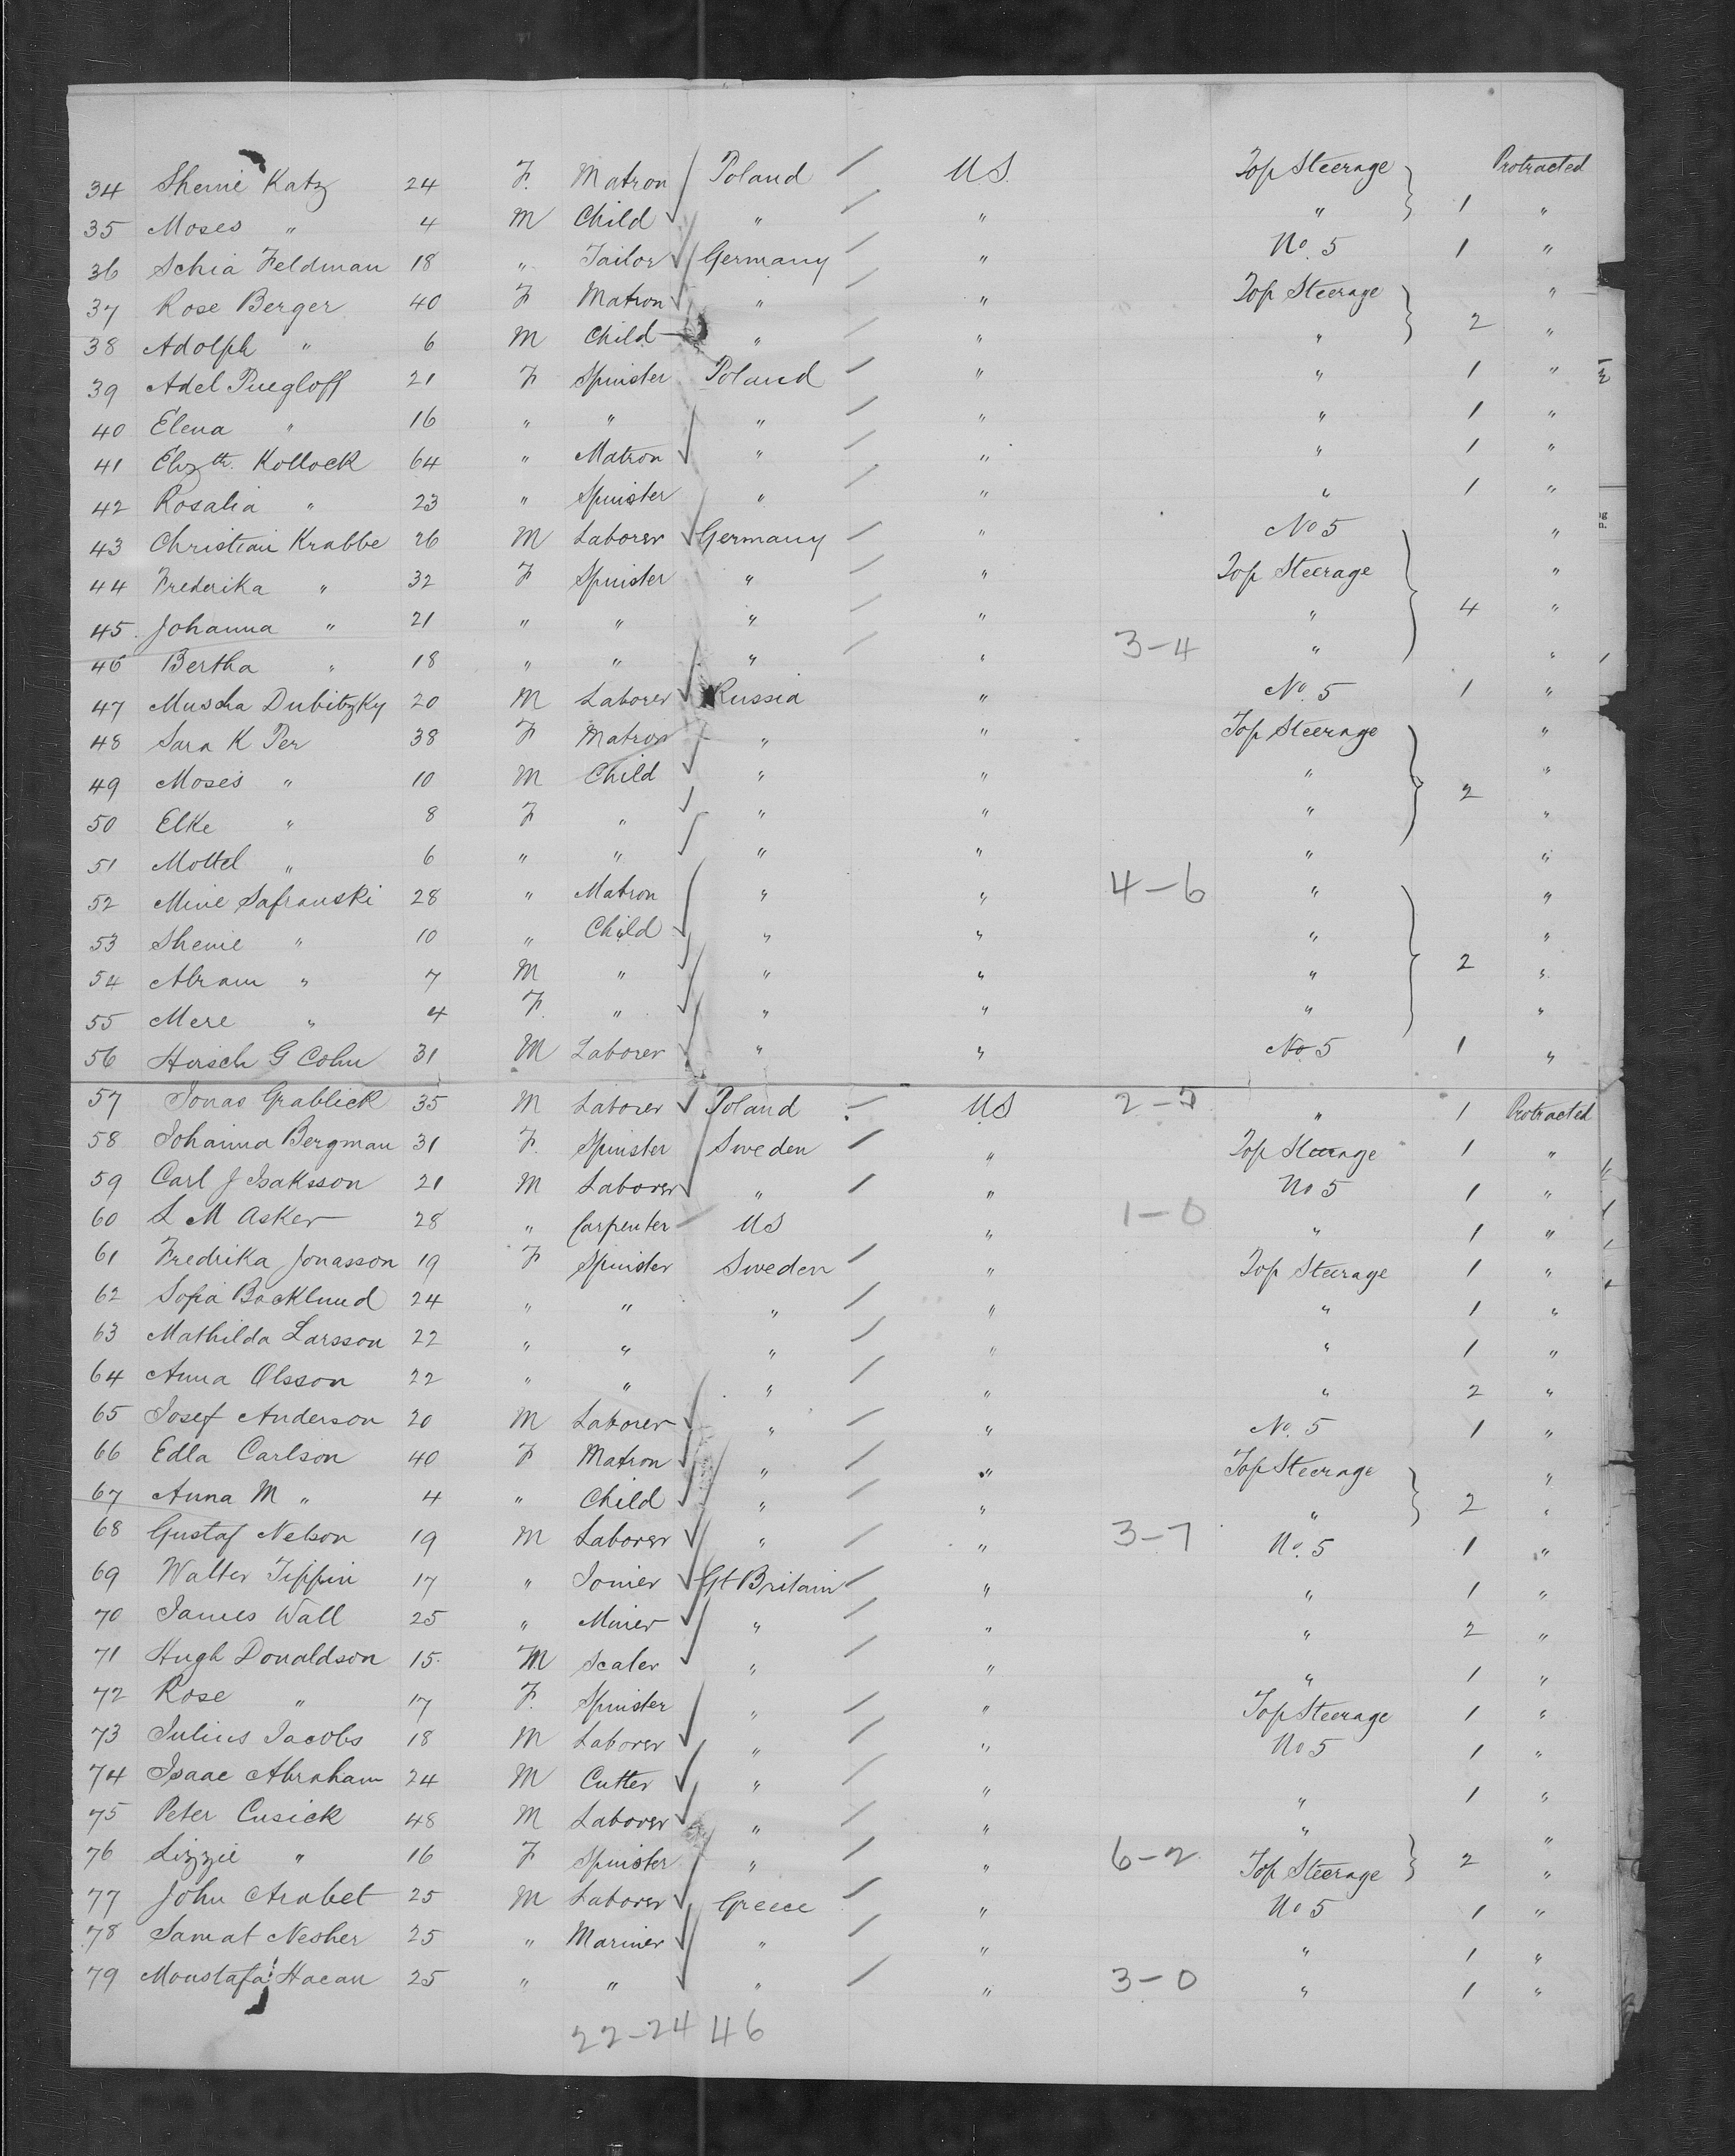 34 Shenie Katz 24 F. Matron Poland / U.S. Top Steerage } 1 Protracted
35 Moses " 4 M Child " / " " "
36 Schia Feldman 18 " Tailor Germany / " No. 5 1 "
37 Rose Berger 40 F Matron " / " Top Steerage } 2 "
38 Adolph " 6 M Child " / " " "
39 Adel Puegloff 21 F Spinster Poland / " " 1 "
40 Elena " 16 " " " / " " 1 "
41 Elizth. Kollock 64 " Matron " / " " 1 "
42 Rosalia " 23 " Spinster " / " " 1 "
43 Christian Krabbe 26 M Laborer Germany / " No 5 "
44 Frederika " 32 F Spinster " / " Top Steerage } 4 "
45 Johanna " 21 " " " / " " "
46 Bertha " 18 " " " / " 3-4 " "
47 Muscha Dubitzky 20 M Laborer Russia " No. 5 1 "
48 Sara K Per 38 F Matron " " Top Steerage "
49 Moses " 10 M Child " " " } 2 "
50 Elke " 8 F " " " " "
51 Mottel " 6 " " " " " "
52 Mine Safranski 28 " Matron " " 4-6 " "
53 Shenie " 10 " Child " " " "
54 Abram " 7 M " " " " } 2 "
55 Mere " 4 F. " " " " "
56 Hirsch G Cohn 31 M Laborer " " No 5 1 "
57 Jonas Grablick 35 M Laborer Poland / U.S 2-2 " 1 Protracted
58 Johanna Bergman 31 F. Spinster Sweden / " Top Steerage 1 "
59 Carl J Isaksson 21 M Laborer " / " No 5 1 "
60 L M Asker 28 " Carpenter U.S " 1-0 " 1 "
61 Fredrika Jonasson 19 F Spinster Sweden / " Top Steerage 1 "
62 Sofia Backlund 24 " " " / " " 1 "
63 Mathilda Larsson 22 " " " / " " 1 "
64 Anna Olsson 22 " " " / " " 2 "
65 Josef Anderson 20 M Laborer " / " No. 5 1 "
66 Edla Carlson 40 F Matron " / " Top Steerage "
67 Anna M " 4 " Child " / " " } 2 "
68 Gustaf Nelson 19 M Laborer " / " 3-7 No. 5 1 "
69 Walter Tippin 17 " Joiner Gt Britain / " " 1 "
70 James Wall 25 " Miner " / " " 2 "
71 Hugh Donaldson 15 M Scaler " / " " 1 "
72 Rose " 17 F. Spinster " / " Top Steerage 1 "
73 Julius Jacobs 18 M Laborer " / " No 5 1 "
74 Isaac Abraham 24 M Cutter " / " " 1 "
75 Peter Cusick 48 M Laborer " / " " "
76 Lizzie " 16 F Spinster " / " 6-2 Top Steerage } 2 "
77 John Arabet 25 M Laborer Greece / " No 5 1 "
78 Samat Nesher 25 " Mariner " / " " 1 "
79 Moustafa Hacan 25 " " " / " 3-0 " 1 "
22-24 46